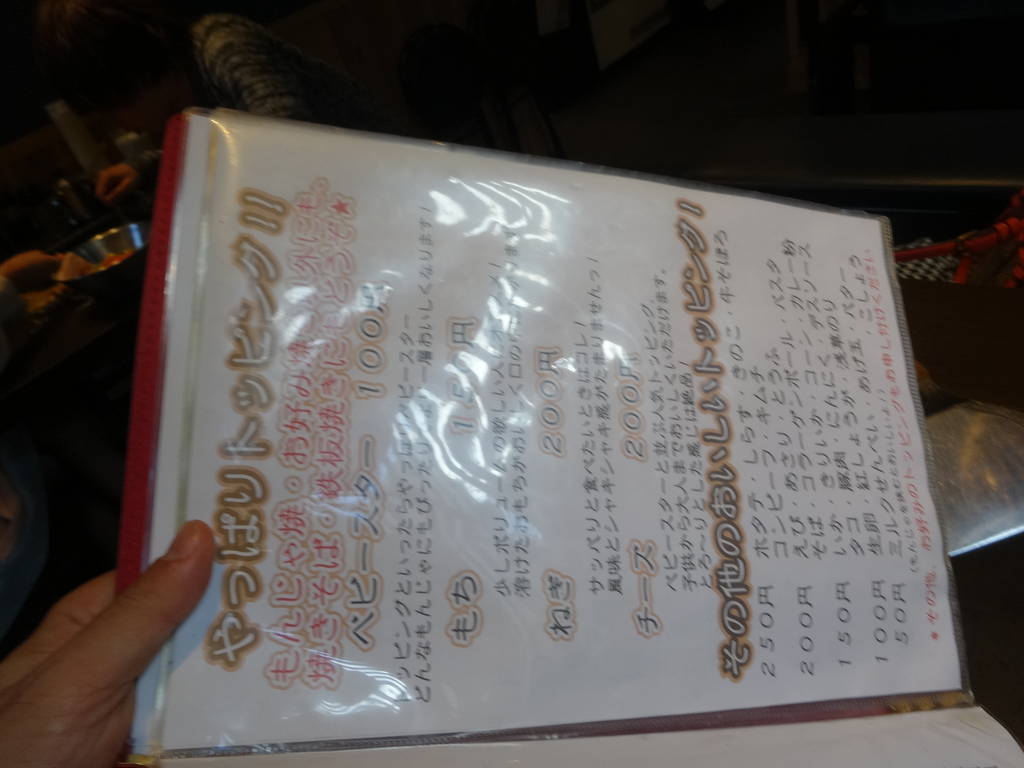 やっぱりトッピング!!
もんじゃ焼・お好み焼き以外にも、
焼きそば・鉄板焼きにもどうぞ★
ベビースター 100円
トッピングといったらやっぱりベビースター
どんなもんじゃにもぴったり 一層おいしくなります!
もち 150円
少しボリュームの欲しい人はオススメ!
溶けたおもちがおいしく口の
ねぎ 200円
サッパリと食べたいときはコレ!
風味とシャキシャキ感がたまりませんっ!
チーズ 200円
ベビースターと並ぶ人気トッピング。
子供から大人までおいしくいただけます。
とろ〜りとした風味は絶品!
その他のおいしいトッピング!
250円 ホタテ・しらす・きのこ・牛そぼろ
コンビーフ・キムチ
200円 えび・あさり・とうふ
そば・コラーゲンボール・パスタ
150円 いか・きりいか・コーン・カレー粉
タコ・豚肉・にんにく・デスソース
100円 生卵・紅しょうが・浅草のり
50円 ミルクせんべい・あげ玉・バター・こしょう
(もんじゃを挟むとおいしいよ♪)
*その他、お好みのトッピングもお申し付けください